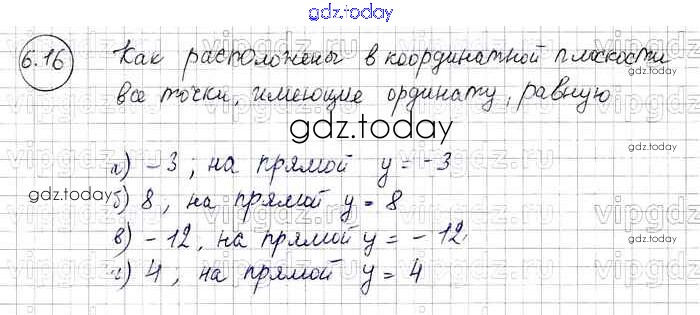 gdz.today
6.16 Как расположены в координатной плоскости
все точки, имеющие ординату, равную
gdz.today
а) -3; на прямой y = -3
gdz.today
б) 8, на прямой y = 8
в) -12, на прямой y = -12
gdz.today
г) 4, на прямой y = 4